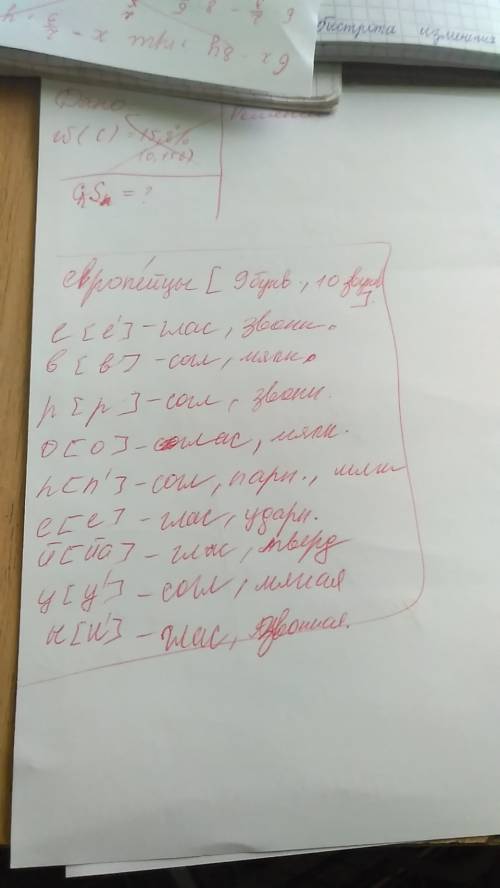 быстрота изменения
Дано
Решение
w(C) = 15,8%
(0,158)
= ?
европейцы [ 9 букв, 10 звуков ].
е [е'] - глас, звонк.
в [в] - согл, мягк.
р [р] - согл, звонк.
о [о] - глас, мягк.
п [п'] - согл, парн., мягк
е [е] - глас, ударн.
й [йа] - глас, тверд
ц [ц'] - согл, мягкая
ы [и'] - глас, звонкая.